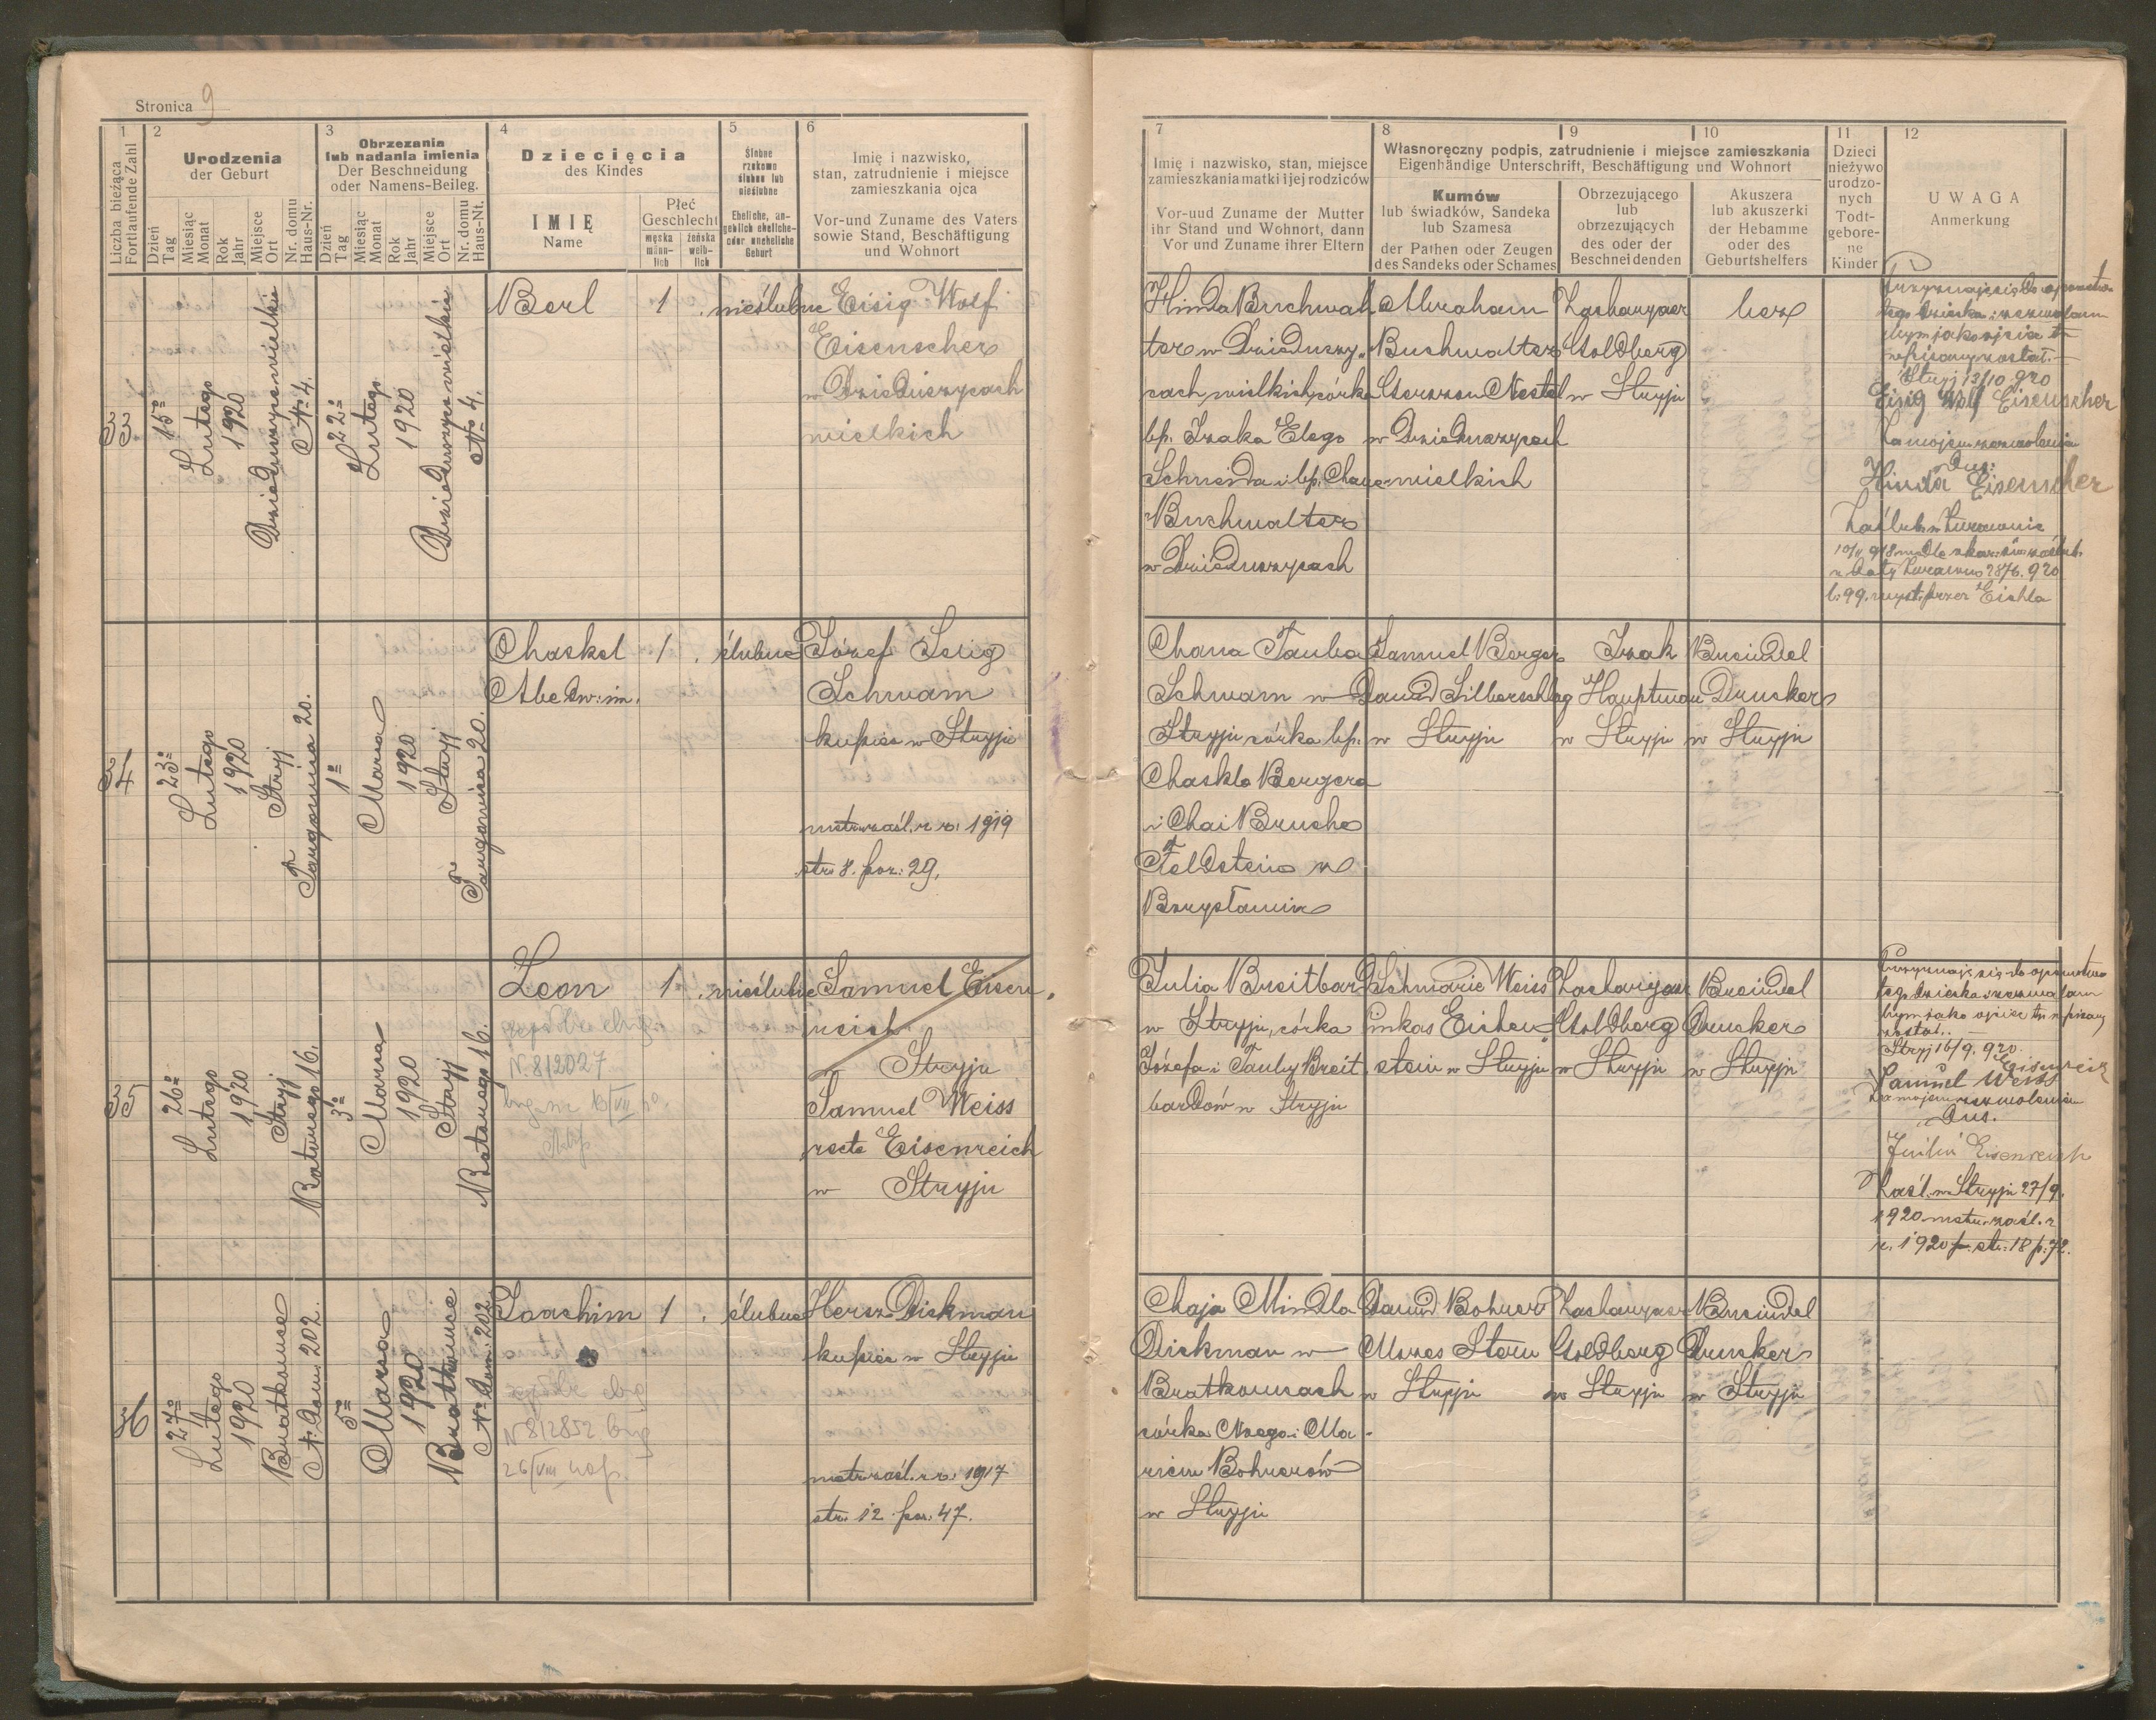 Stronica 9
1
Liczba bieżąca
Fortlaufende Zahl
2
Urodzenia
der Geburt
Dzień
Tag
Miesiąc
Monat
Rok
Jahr
Miejsce
Ort
Nr. domu
Haus-Nr.
3
Obrzezania
lub nadania imienia
Der Beschneidung
oder Namens-Beileg.
Dzień
Tag
Miesiąc
Monat
Rok
Jahr
Miejsce
Ort
Nr. domu
Haus-Nt.
4
Dziecięcia
des Kindes
IMIĘ
Name
Płeć
Geschlecht
męska
männ-
lich
żeńska
weib-
lich
5
Ślubne
rzekomo
ślubne lub
nieślubne
Eheliche, an-
geblich eheliche-
oder uneheliche
Geburt
6
Imię i nazwisko,
stan, zatrudnienie i miejsce
zamieszkania ojca
Vor-und Zuname des Vaters
sowie Stand, Beschäftigung
und Wohnort
7
Imię i nazwisko, stan, miejsce
zamieszkania matki i jej rodziców
Vor-uud Zuname der Mutter
ihr Stand und Wohnort, dann
Vor und Zuname ihrer Eltern
8
9
10
Własnoręczny podpis, zatrudnienie i miejsce zamieszkania
Eigenhändige Unterschrift, Beschäftigung und Wohnort
Kumów
lub świadków, Sandeka
lub Szamesa
der Pathen oder Zeugen
des Sandeks oder Schames
Obrzezującego
lub
obrzezujących
des oder der
Beschneidenden
Akuszera
lub akuszerki
der Hebamme
oder des
Geburtshelfers
11
Dzieci
nieżywo
urodzo-
nych
Todt-
gebore-
ne
Kinder
12
UWAGA
Anmerkung
33
15o
Lutego
1920
Dzieduszyce wielkie
Nr 4.
22o
Lutego
1920
Dzieduszyce wielkie
No 4.
Berl
1
nieślubne
Eisig Wolf
Eisenscher
w Dzieduszycach
wielkich
Hinda Buchwal
ter w Dzieduszy-
cach wielkich, córka
bp. Izaka Elego
Schneida i bp. Chane
Buchwalter
w Dzieduszycach
Abraham
Buchwalter
Gerson Nestel
w Dzieduszycach
wielkich
Zacharyasz
Goldberg
w Stryju
bez
Przyznaję się do ojcowstwa
tego dziecka i zezwalam
bym jako ojciec tu
wpisany został.
Stryj 13/10 920
Eisig Wolf Eisenscher
Za mojem zezwoleniem
Dus:
Hinda Eisenscher
Zaślub. w Żurawnie
l: 99. wyst. przez Eichla
34
23o
Lutego
1920
Stryj
Targowica 20.
1o
Marca
1920
Stryj
Targowica 20.
Chaskel
Abe dw: im.
1
ślubne
Józef Selig
Schwam
kupiec w Stryju
metr. zaśl. z r. 1919
str. 8. poz: 29.
Chana Tauba
Schwam w
Stryju córka bp.
Chaskla Bergera
i Chai Bruche
Feldstein w
Borysławiu
Samuel Berger
Dawid Silberschlag
w Stryju
Izak
Hauptman
w Stryju
Breindel
Drucker
w Stryju
35
26o
Lutego
1920
Stryj
Batorego 16.
3o
Marca
1920
Stryj
Batorego 16.
Leon
N. 8/2027
1
nieślubne
Samuel Eisen
reich
Stryju
Samuel Weiss
recte Eisenreich
w Stryju
Julia Breitbard
w Stryju, córka
Józefa i Tauby Breit
bardów w Stryju
Schmarie Weiss
Pinkas Eichen
stein w Stryju
Zacharyasz
Goldberg
w Stryju
Breindel
Drucker
w Stryju
Przyznaję się do ojcowstwa
tego dziecka i zezwalam
bym jako ojciec tu wpisany
został.
Stryj 16/9. 920
Eisenreich
Samuel Weiss
Za mojem zezwoleniem
Dus.
Julia Eisenreich
Zaśl. w Stryju 27/9.
1920 metr. zaśl. z
r. 1920 str. 18 p: 72.
36
27o
Lutego
1920
Bratkowce
Nr dom. 202.
5o
Marca
1920
Bratkowce
Nr dom: 202
Joachim
N 8/2852
26/VIII
1
ślubne
Hersz Dickman
kupiec w Stryju
metr. zaśl. z r. 1917
str. 12. poz. 47.
Chaja Mindla
Dickman w
Bratkowcach
córka Noego i Ma-
riem Bohrerów
w Stryju
Dawid Bohrer
Mozes Stern
w Stryju
Zacharyasz
Goldberg
w Stryju
Breindel
Drucker
w Stryju